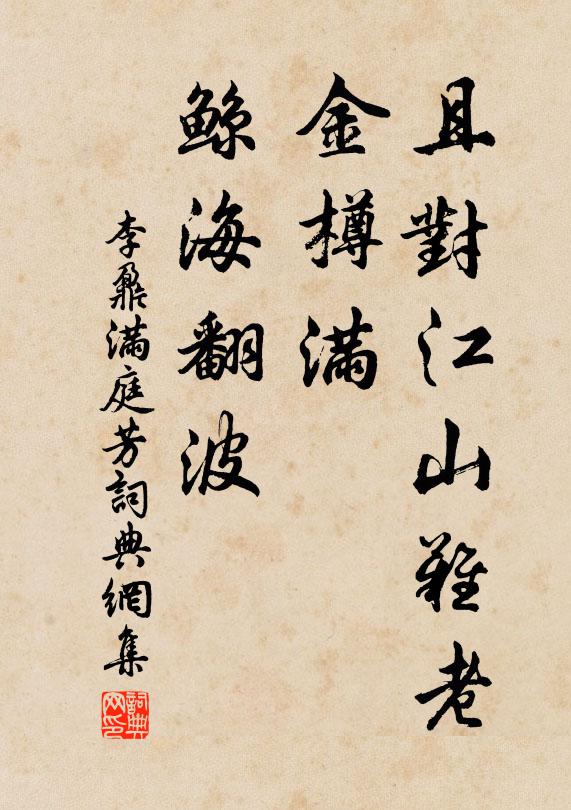 且對江山難老
金樽滿
鯨海翻波
李鼐滿庭芳詞典網集
詞典網印